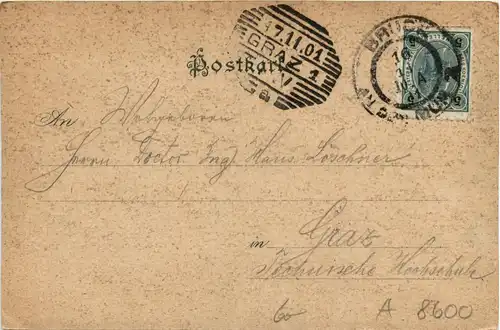 17.11.01
GRAZ 1
BRUCK
Postkarte
5
An Wohlgeboren
Herrn Doctor Ing. Hans Löschner
in Graz
Technische Hochschule
A 8600